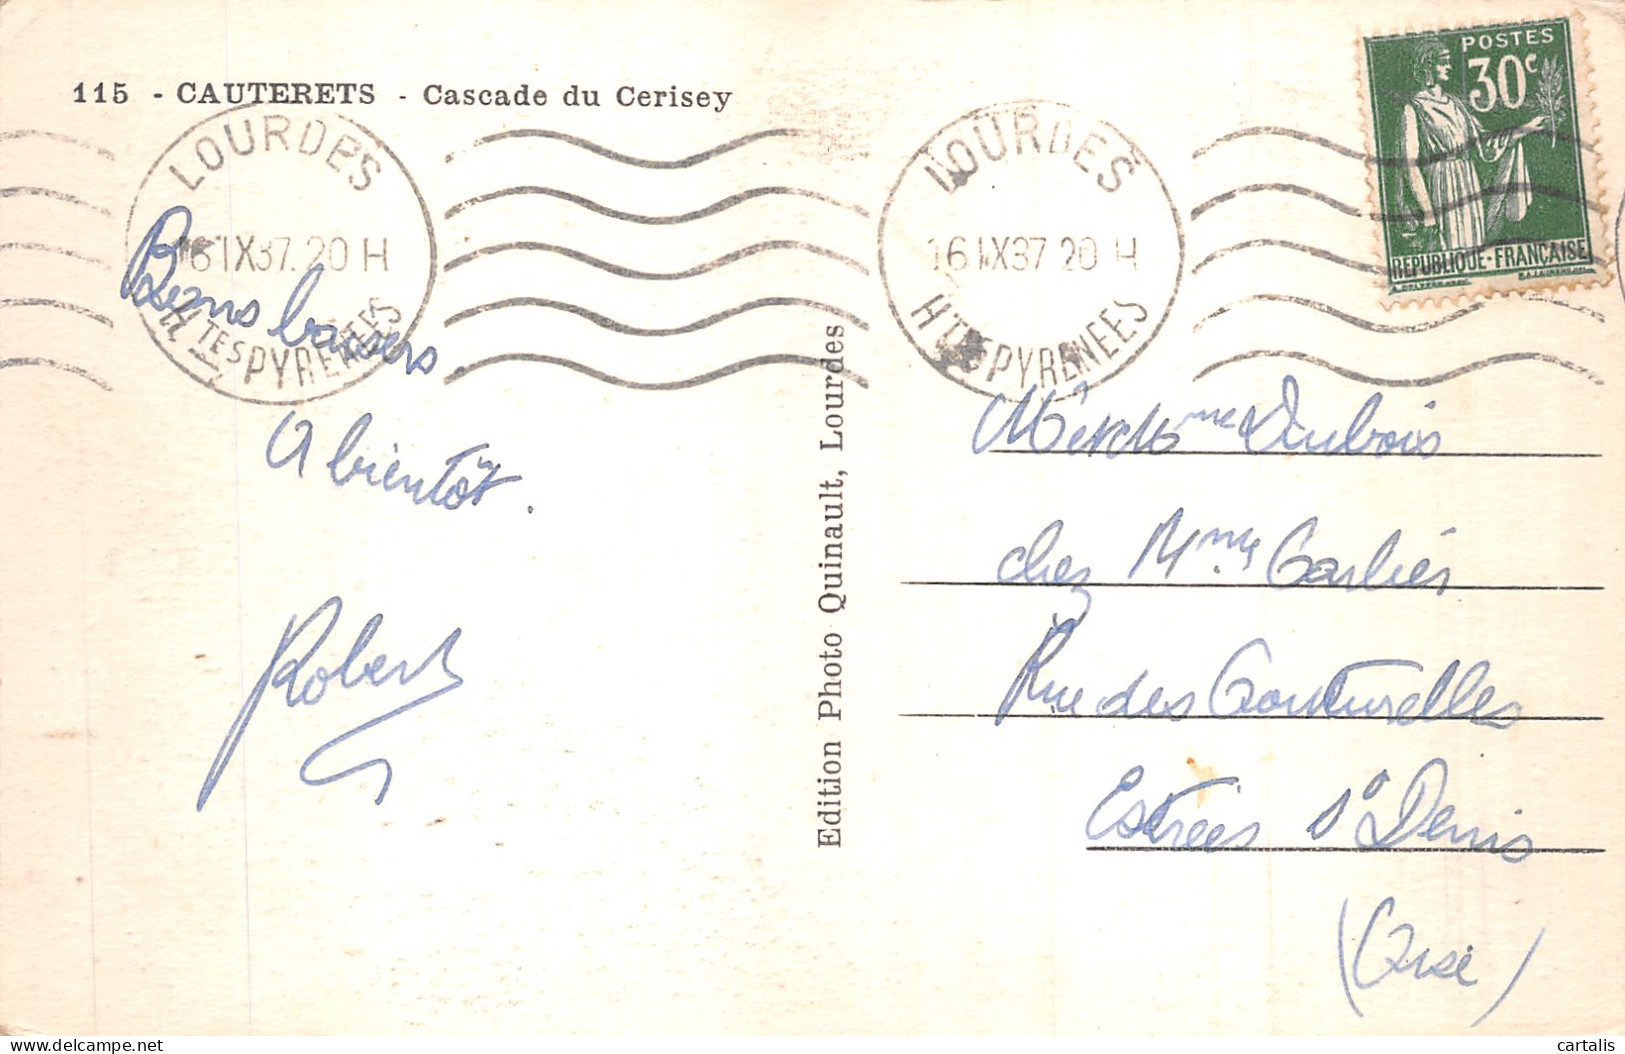 115 - CAUTERETS - Cascade du Cerisey
LOURDES
16 IX 37. 20 H
HTES PYRENEES
LOURDES
16 IX 37 20 H
HTES PYRENEES
POSTES
30c
REPUBLIQUE-FRANÇAISE
Bons baisers.
A bientôt.
Robert
Edition Photo Quinault, Lourdes
Mme Dubois
chez Mme Carlier
Rue des
Estrées St Denis
(Oise)
cartalis
delcampe.net